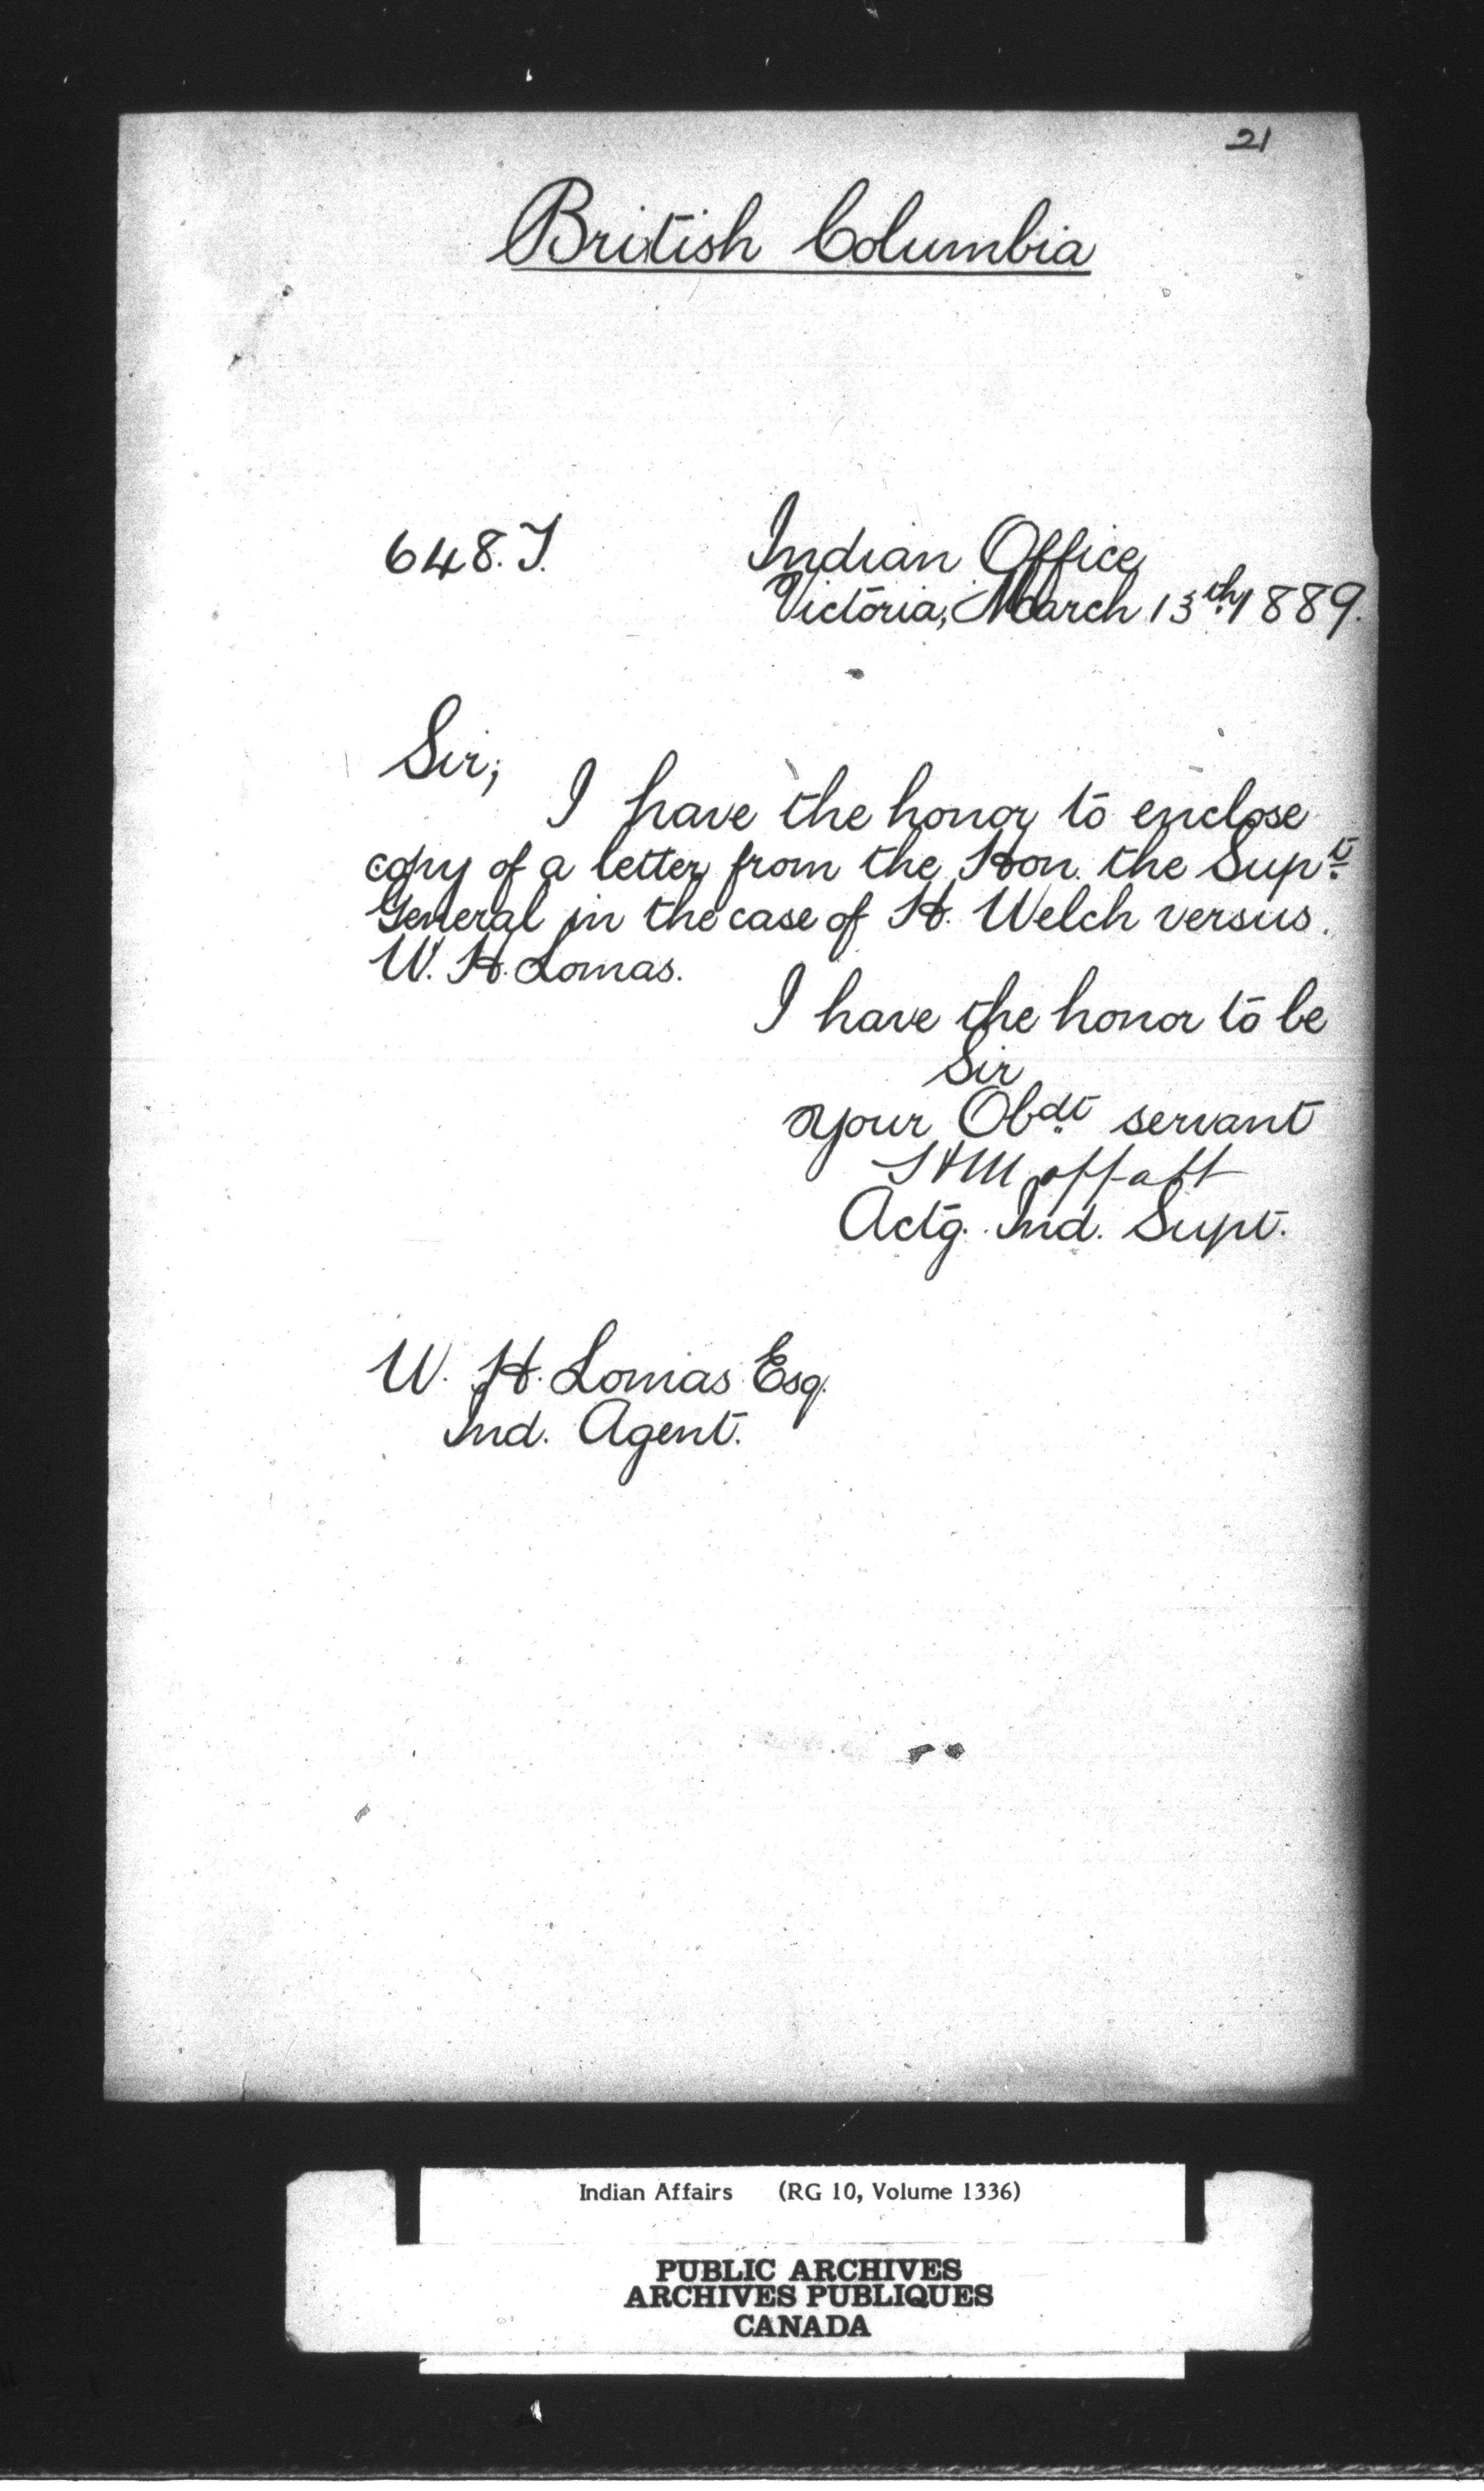 21
British Columbia
648.I.
Indian Office
Victoria, March 13th 1889.
Sir;
I have the honor to enclose
copy of a letter from the Hon. the Supt.
General in the case of H. Welch versus
W. H. Lomas.
I have the honor to be
Sir
your Obdt. servant
Moffatt
Actg. Ind. Supt.
W. H. Lomas Esq.
Ind. Agent.
Indian Affairs (RG 10, Volume 1336)
PUBLIC ARCHIVES
ARCHIVES PUBLIQUES
CANADA